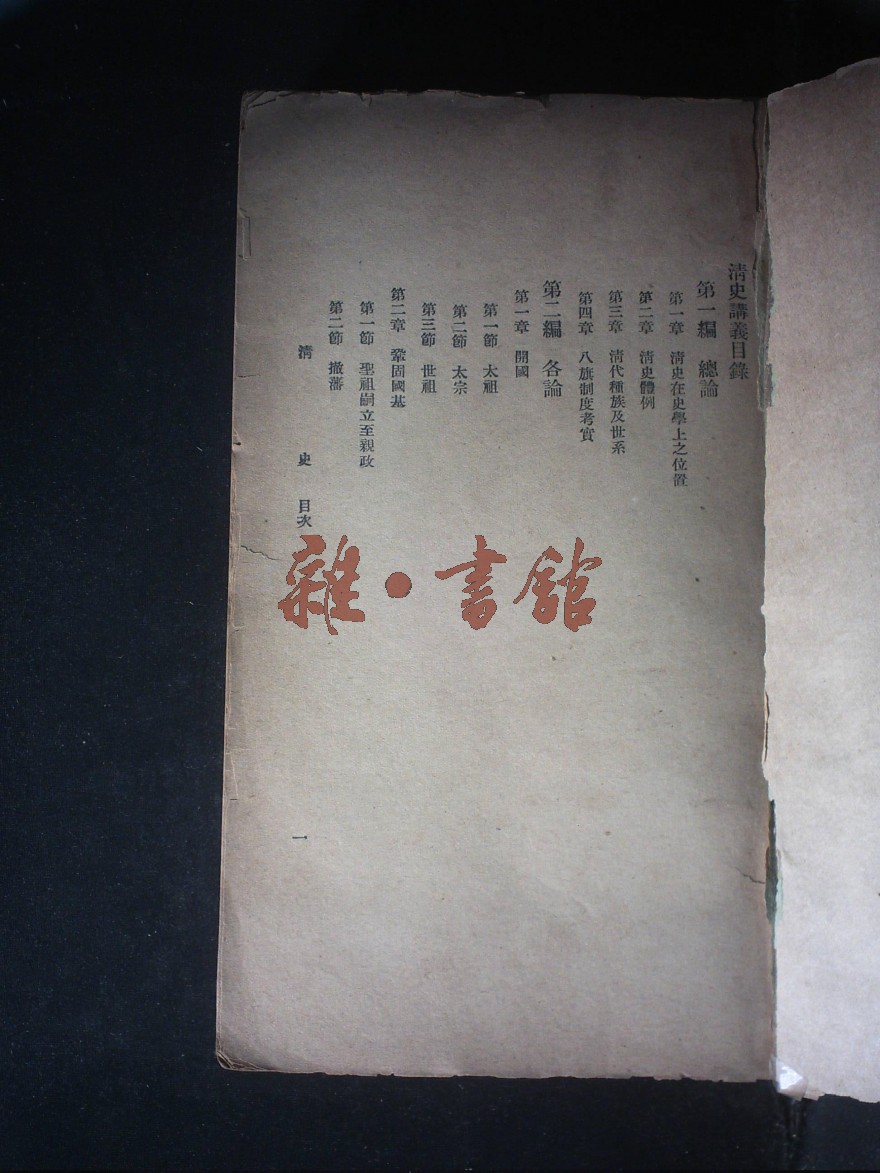 清史講義目錄
第一編　總論
第一章　清史在史學上之位置
第二章　清史體例
第三章　清代種族及世系
第四章　八旗制度考實
第二編　各論
第一章　開國
第一節　太祖
第二節　太宗
第三節　世祖
第二章　鞏固國基
第一節　聖祖嗣立至親政
第二節　撤藩
清　史　目次　一
雜·書館